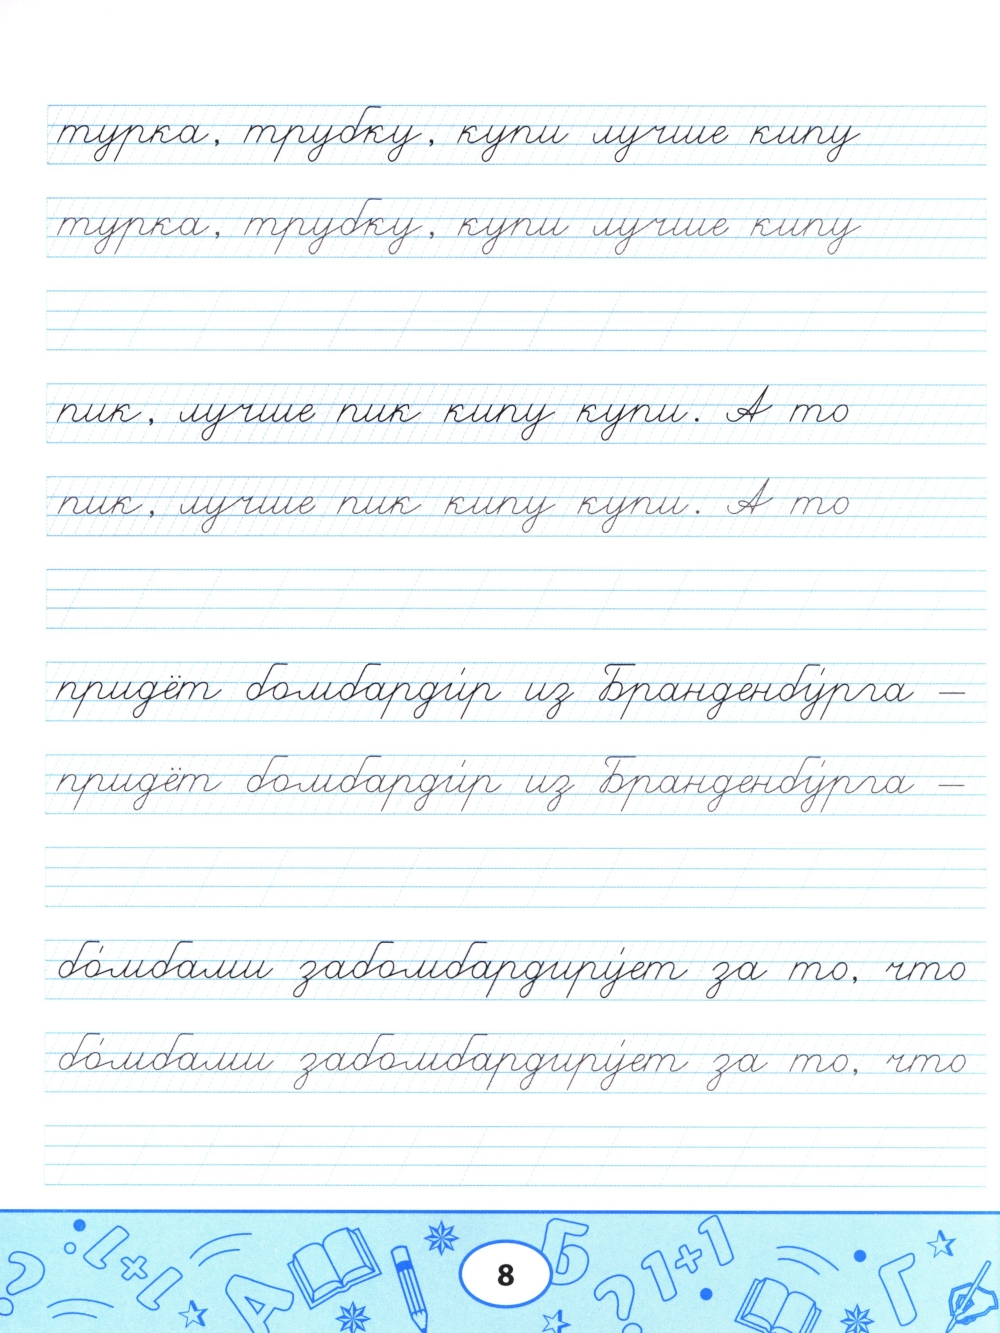 турка, трубку, купи лучше кипу
турка, трубку, купи лучше кипу
пик, лучше пик кипу купи. А то
пик, лучше пик кипу купи. А то
придёт бомбарди́р из Бранденбу́рга –
придёт бомбарди́р из Бранденбу́рга –
бо́мбами забомбардиру́ет за то, что
бо́мбами забомбардиру́ет за то, что
? 1×1 А 8 Б ? 1+1 Г